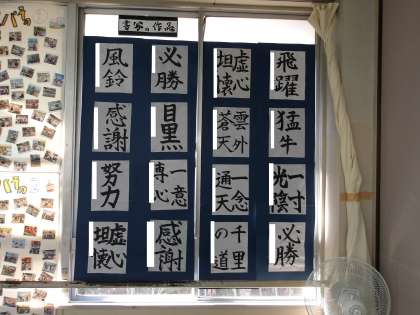 書写の作品
飛躍
虚心
坦懐
必勝
風鈴
猛牛
雲外
蒼天
目黒
感謝
一寸
光陰
一念
通天
一意
専心
努力
必勝
千里
の道
感謝
虚心
坦懐